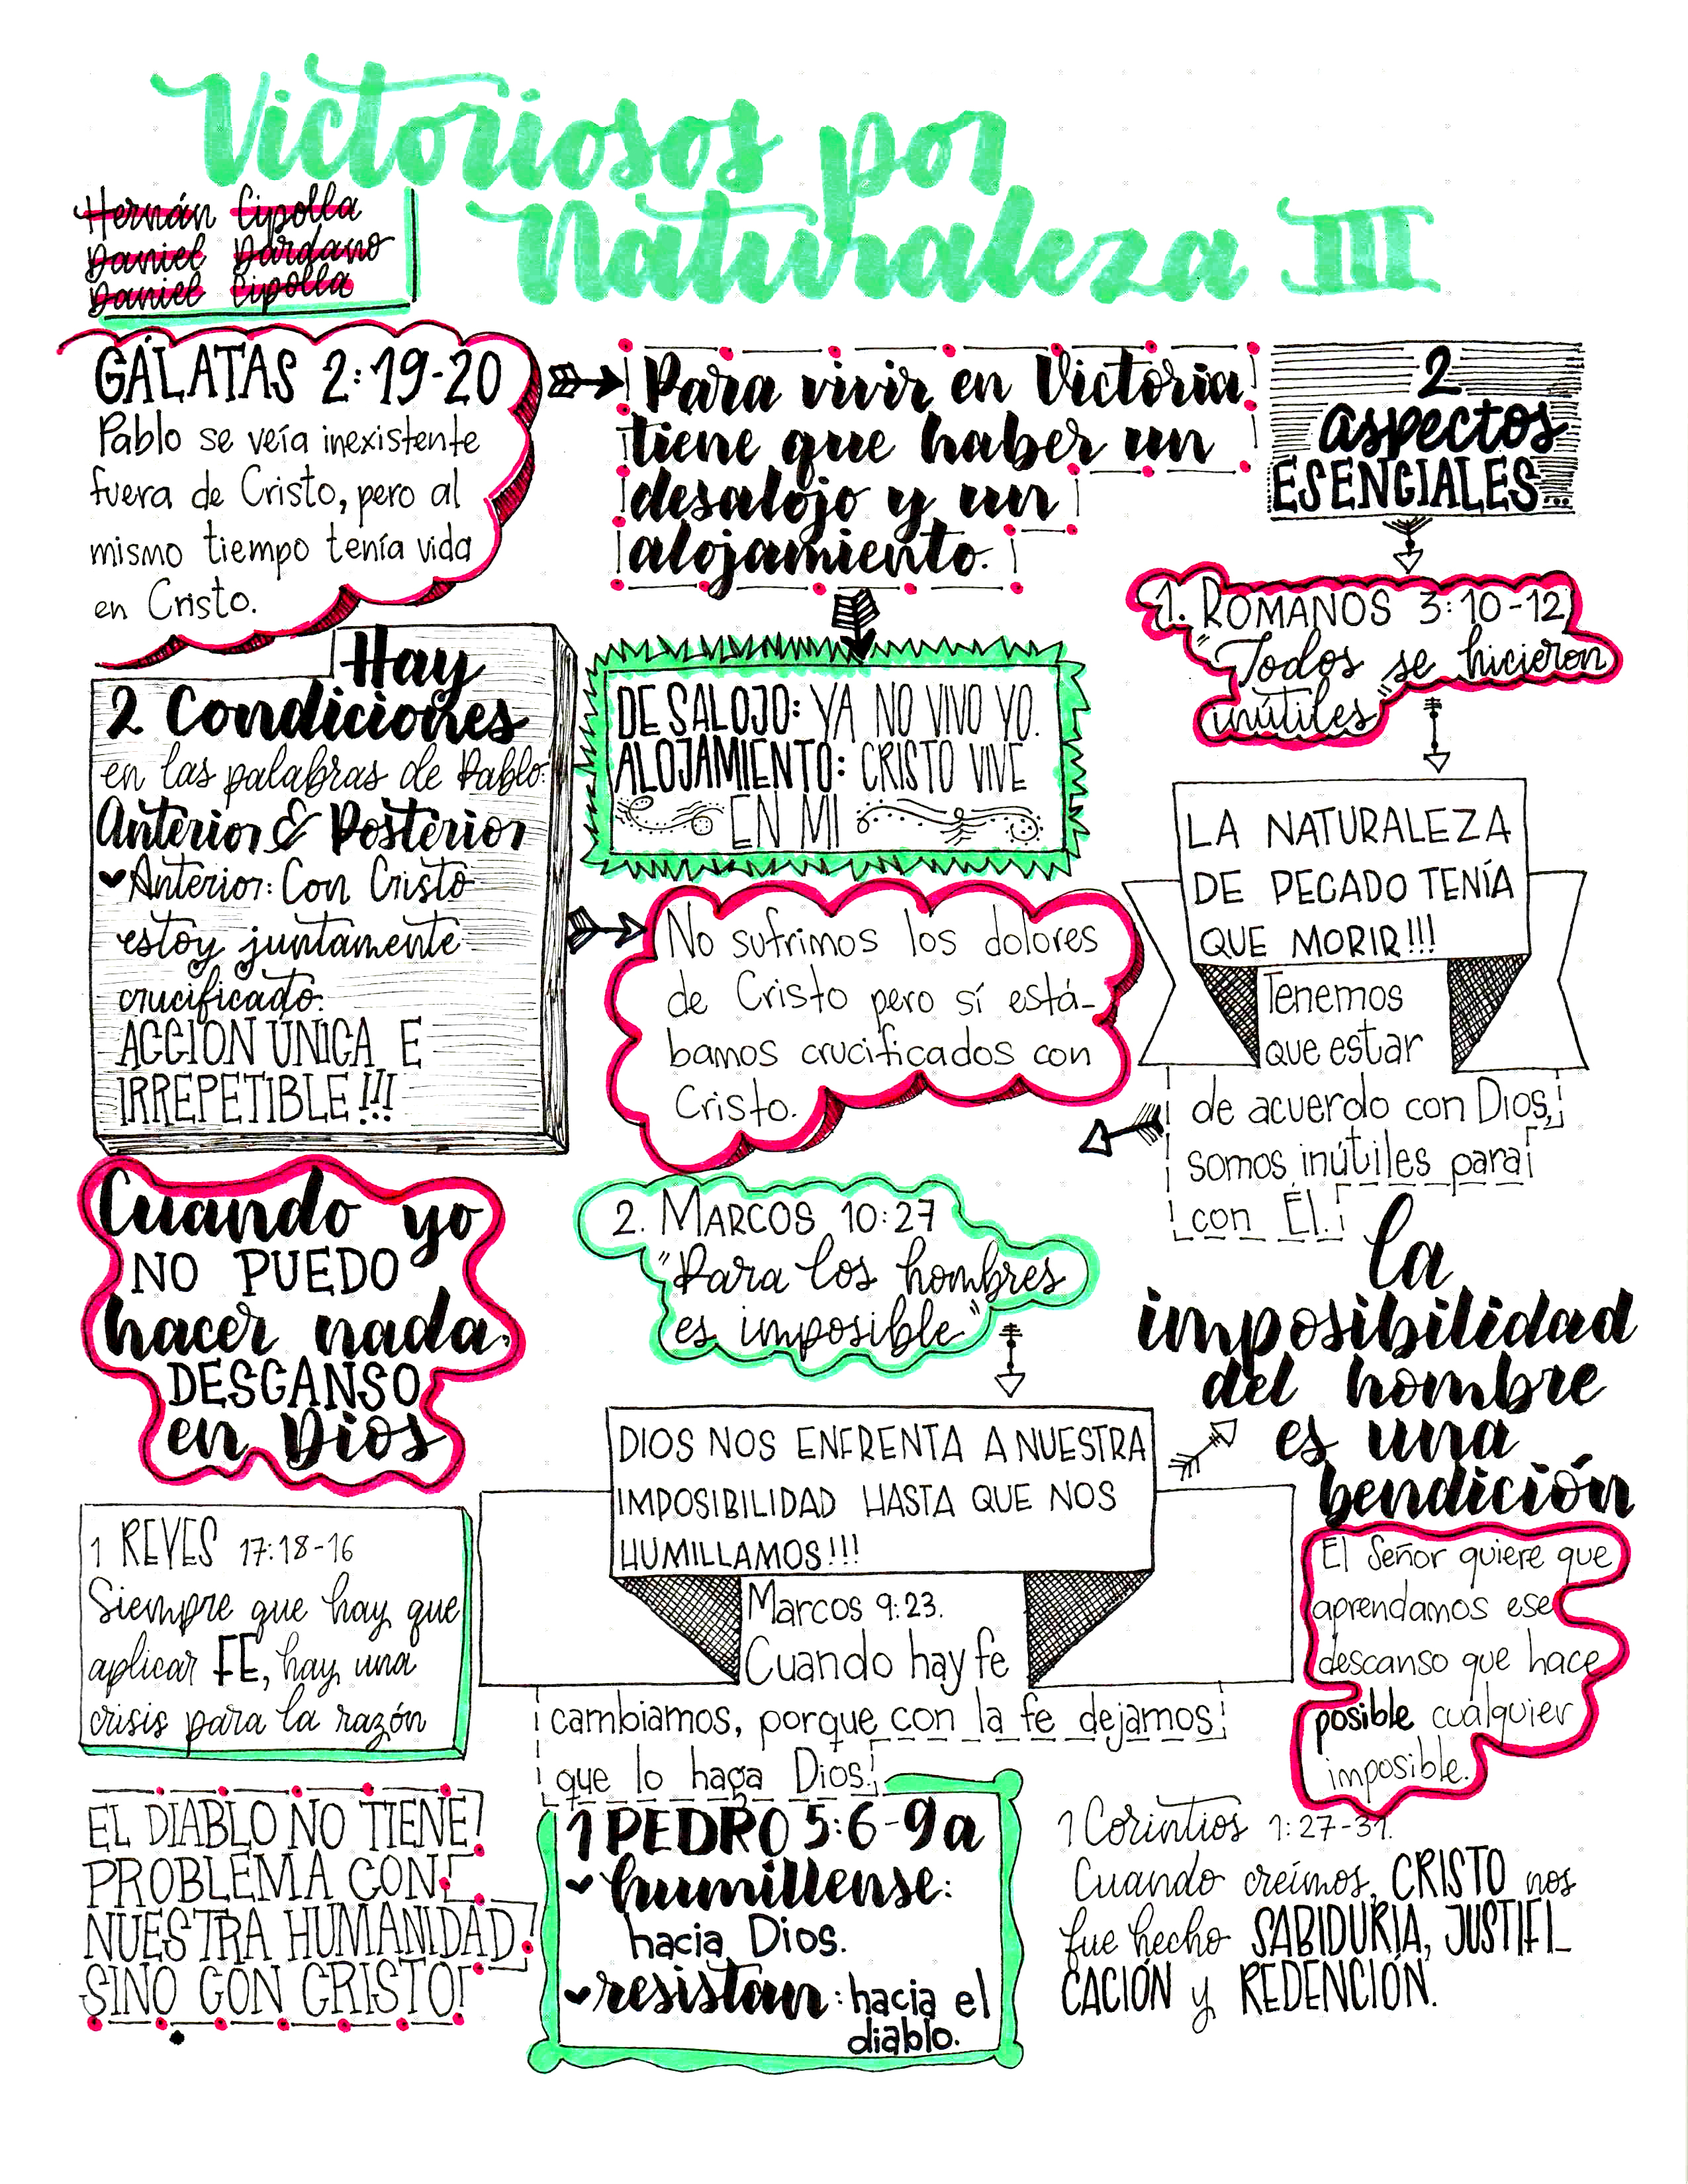 Victoriosos por
Naturaleza III
Hernán Cipolla
Daniel Dardano
Daniel Cipolla
GÁLATAS 2:19-20
Pablo se veía inexistente
fuera de Cristo, pero al
mismo tiempo tenía vida
en Cristo.
Para vivir en Victoria
tiene que haber un
desalojo y un
alojamiento.
2
aspectos
ESENCIALES...
1. ROMANOS 3:10-12
"Todos se hicieron
inútiles"
Hay
2 Condiciones
en las palabras de Pablo:
Anterior & Posterior
Anterior: Con Cristo
estoy juntamente
crucificado.
ACCIÓN ÚNICA E
IRREPETIBLE!!!
DESALOJO: YA NO VIVO YO.
ALOJAMIENTO: CRISTO VIVE
EN MI
LA NATURALEZA
DE PECADO TENÍA
QUE MORIR!!!
Tenemos
que estar
de acuerdo con Dios,
somos inútiles para
con Él.
No sufrimos los dolores
de Cristo pero sí está-
bamos crucificados con
Cristo.
Cuando yo
NO PUEDO
hacer nada,
DESCANSO
en Dios
2. MARCOS 10:27
"Para los hombres
es imposible"
la
imposibilidad
del hombre
es una
bendición
DIOS NOS ENFRENTA A NUESTRA
IMPOSIBILIDAD HASTA QUE NOS
HUMILLAMOS!!!
Marcos 9:23.
Cuando hay fe
cambiamos, porque con la fe dejamos
que lo haga Dios.
El Señor quiere que
aprendamos ese
descanso que hace
posible cualquier
imposible.
1 REYES 17:18-16
Siempre que hay que
aplicar FE, hay una
crisis para la razón
EL DIABLO NO TIENE
PROBLEMA CON
NUESTRA HUMANIDAD
SINO CON CRISTO!
1 PEDRO 5:6-9a
humillense:
hacia Dios.
resistan: hacia el
diablo.
1 Corintios 1:27-31.
Cuando creímos, CRISTO nos
fue hecho SABIDURÍA, JUSTIFI-
CACIÓN y REDENCIÓN.